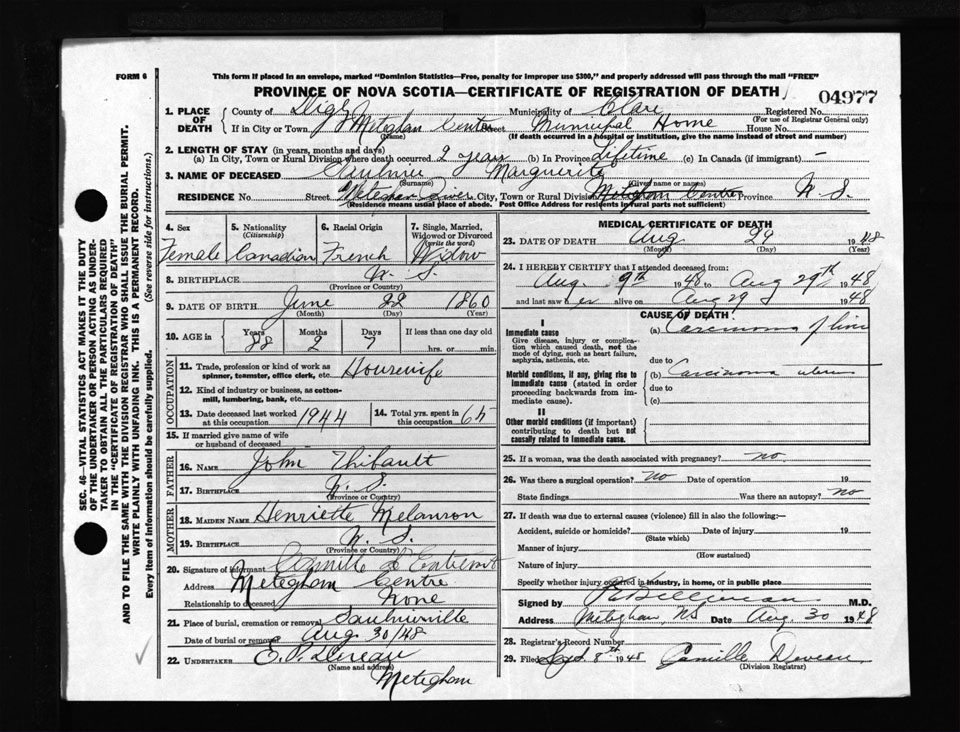 FORM 6
This form if placed in an envelope, marked "Dominion Statistics—Free, penalty for improper use $300," and properly addressed will pass through the mail "FREE"
PROVINCE OF NOVA SCOTIA—CERTIFICATE OF REGISTRATION OF DEATH
04977
1. PLACE OF DEATH County of Digby Municipality of Clare Registered No.
(For use of Registrar General only)
If in City or Town Meteghan Centre Street Municipal Home House No.
(Name) (If death occurred in a hospital or institution, give the name instead of street and number)
2. LENGTH OF STAY (in years, months and days)
(a) In City, Town or Rural Division where death occurred 2 years (b) In Province Lifetime (c) In Canada (if immigrant) -
3. NAME OF DECEASED Saulnier Marguerite
(Surname) (Given name or names)
RESIDENCE No. Street Meteghan River City, Town or Rural Division Meteghan Centre Province N. S.
(Residence means usual place of abode. Post Office Address for residents in rural parts not sufficient)
4. Sex 5. Nationality (Citizenship) 6. Racial Origin 7. Single, Married, Widowed or Divorced (write the word)
Female Canadian French Widow
8. BIRTHPLACE N. S.
(Province or Country)
9. DATE OF BIRTH June 22 1860
(Month) (Day) (Year)
10. AGE in Years Months Days If less than one day old
88 2 7 hrs. or min.
OCCUPATION
11. Trade, profession or kind of work as spinner, teamster, office clerk, etc. Housewife
12. Kind of industry or business, as cotton-mill, lumbering, bank, etc.
13. Date deceased last worked at this occupation 1944 14. Total yrs. spent in this occupation 65
15. If married give name of wife or husband of deceased
FATHER
16. NAME John Thibault
17. BIRTHPLACE N. S.
(Province or Country)
MOTHER
18. MAIDEN NAME Henriette Melanson
19. BIRTHPLACE N. S.
(Province or Country)
20. Signature of informant Camille d'Entremont
Address Meteghan Centre
Relationship to deceased None
21. Place of burial, cremation or removal Saulnierville
Date of burial or removal Aug. 30/48
22. UNDERTAKER
(Name and address)
Meteghan
MEDICAL CERTIFICATE OF DEATH
23. DATE OF DEATH Aug 29 1948
(Month) (Day) (Year)
24. I HEREBY CERTIFY that I attended deceased from:
Aug. 9th 1948 to Aug 29th 1948
and last saw her alive on Aug 29 1948
CAUSE OF DEATH
I
Immediate cause (a) Carcinoma of liver
Give disease, injury or complication which caused death, not the mode of dying, such as heart failure, asphyxia, asthenia, etc.
due to
Morbid conditions, if any, giving rise to immediate cause (stated in order proceeding backwards from immediate cause).
(b) Carcinoma uterus
due to
(c)
II
Other morbid conditions (if important) contributing to death but not causally related to immediate cause.
25. If a woman, was the death associated with pregnancy? no.
26. Was there a surgical operation? no Date of operation 19
State findings Was there an autopsy? no
27. If death was due to external causes (violence) fill in also the following:—
Accident, suicide or homicide? Date of injury 19
(State which)
Manner of injury
(How sustained)
Nature of injury
Specify whether injury occurred in industry, in home, or in public place
Signed by M.D.
Address Meteghan, NS Date Aug. 30 1948
28. Registrar's Record Number
29. Filed Sept. 8th 1948 Camille Deveau
(Division Registrar)
SEC. 46—VITAL STATISTICS ACT MAKES IT THE DUTY
OF THE UNDERTAKER OR PERSON ACTING AS UNDERTAKER TO OBTAIN ALL THE PARTICULARS REQUIRED
IN THE "CERTIFICATE OF REGISTRATION OF DEATH"
AND TO FILE THE SAME WITH THE DIVISION REGISTRAR WHO SHALL ISSUE THE BURIAL PERMIT.
WRITE PLAINLY WITH UNFADING INK. THIS IS A PERMANENT RECORD.
Every item of information should be carefully supplied. (See reverse side for instructions.)